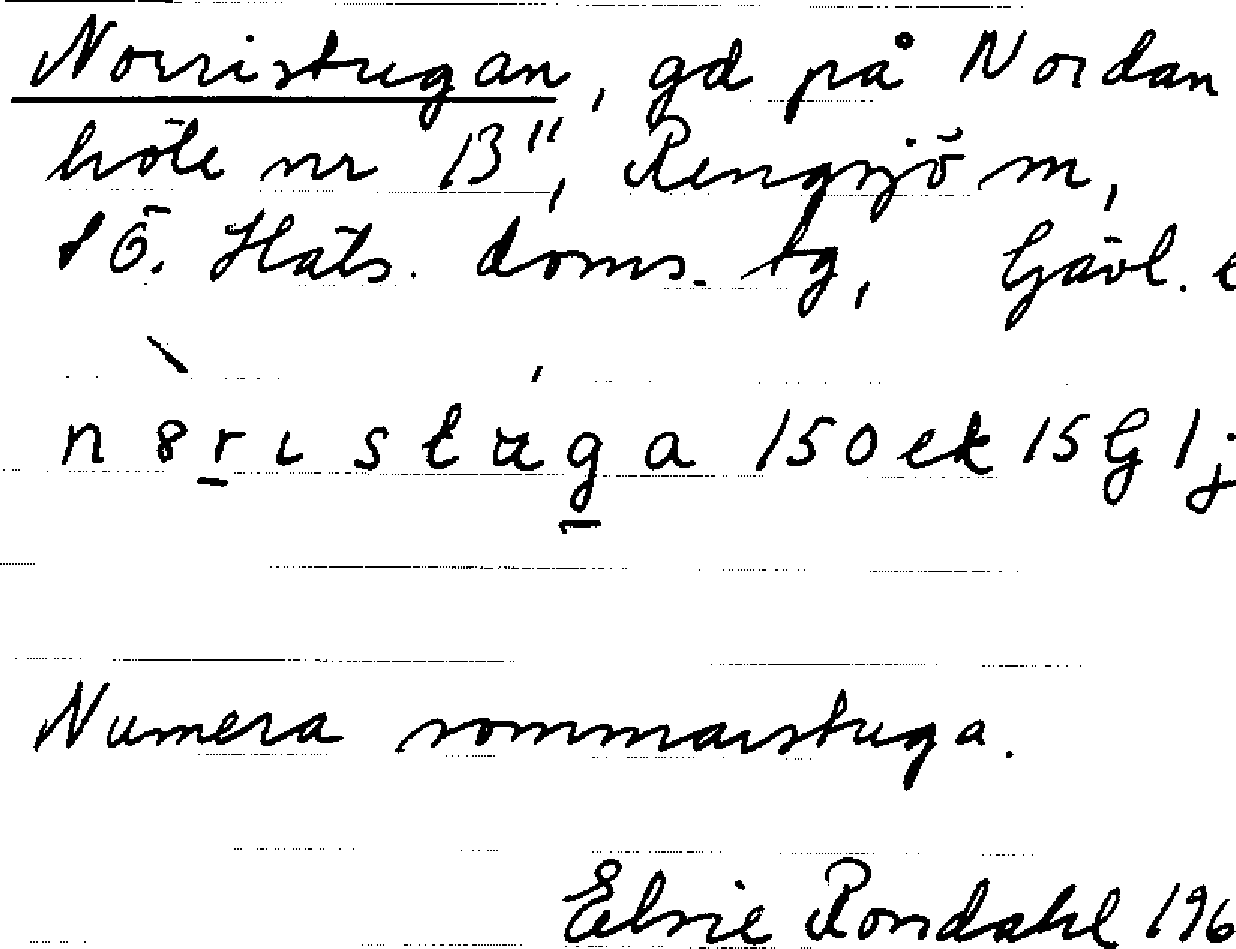 Norristugan, gd på Nordan
höle nr 13", Rengsjö sn,
SÖ. Häls. doms. tg, Gävl.
n 8 r ɩ s t u g a 15 O ek 15 G 1 j
Numera sommarstuga.
Elsie Rondahl 196